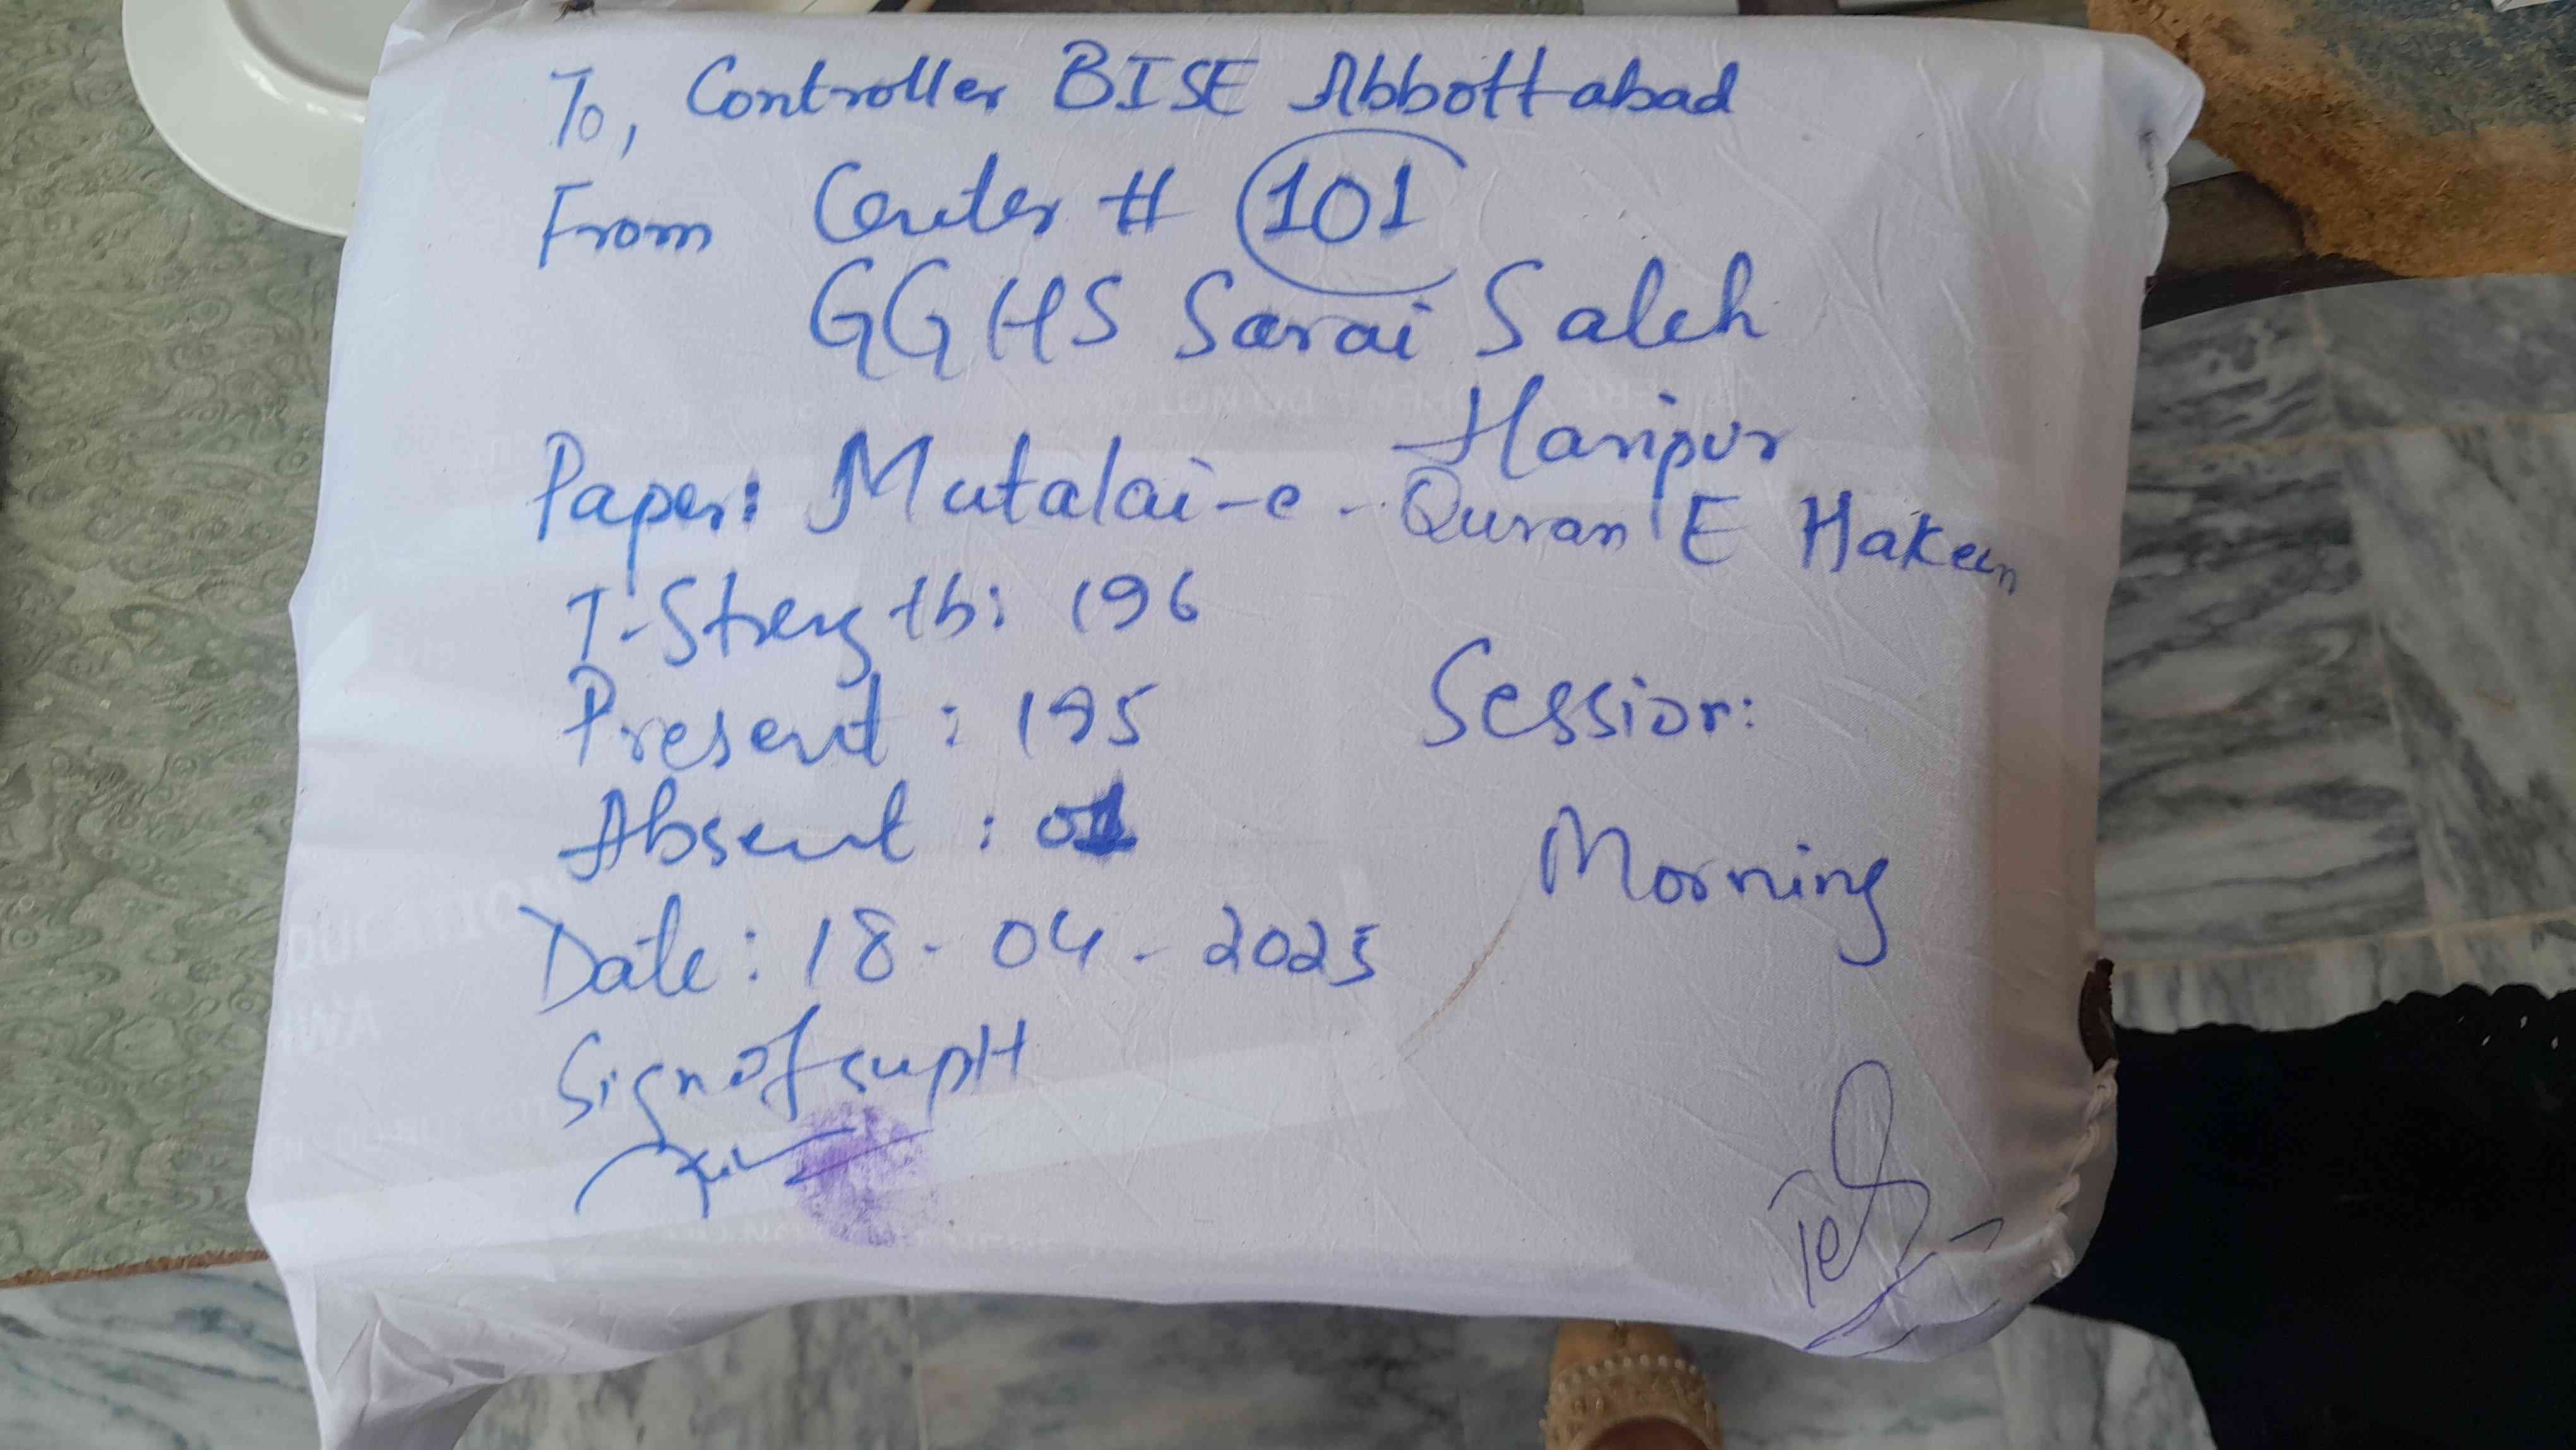 To, Controller BISE Abbottabad
From Center # 101
GGHS Sarai Saleh
Haripur
Paper: Mutalai-e-Quran E Hakeem
T-Strength: 196
Present: 195
Absent: 01
Session:
Morning
Date: 18-04-2025
Sign of suptt